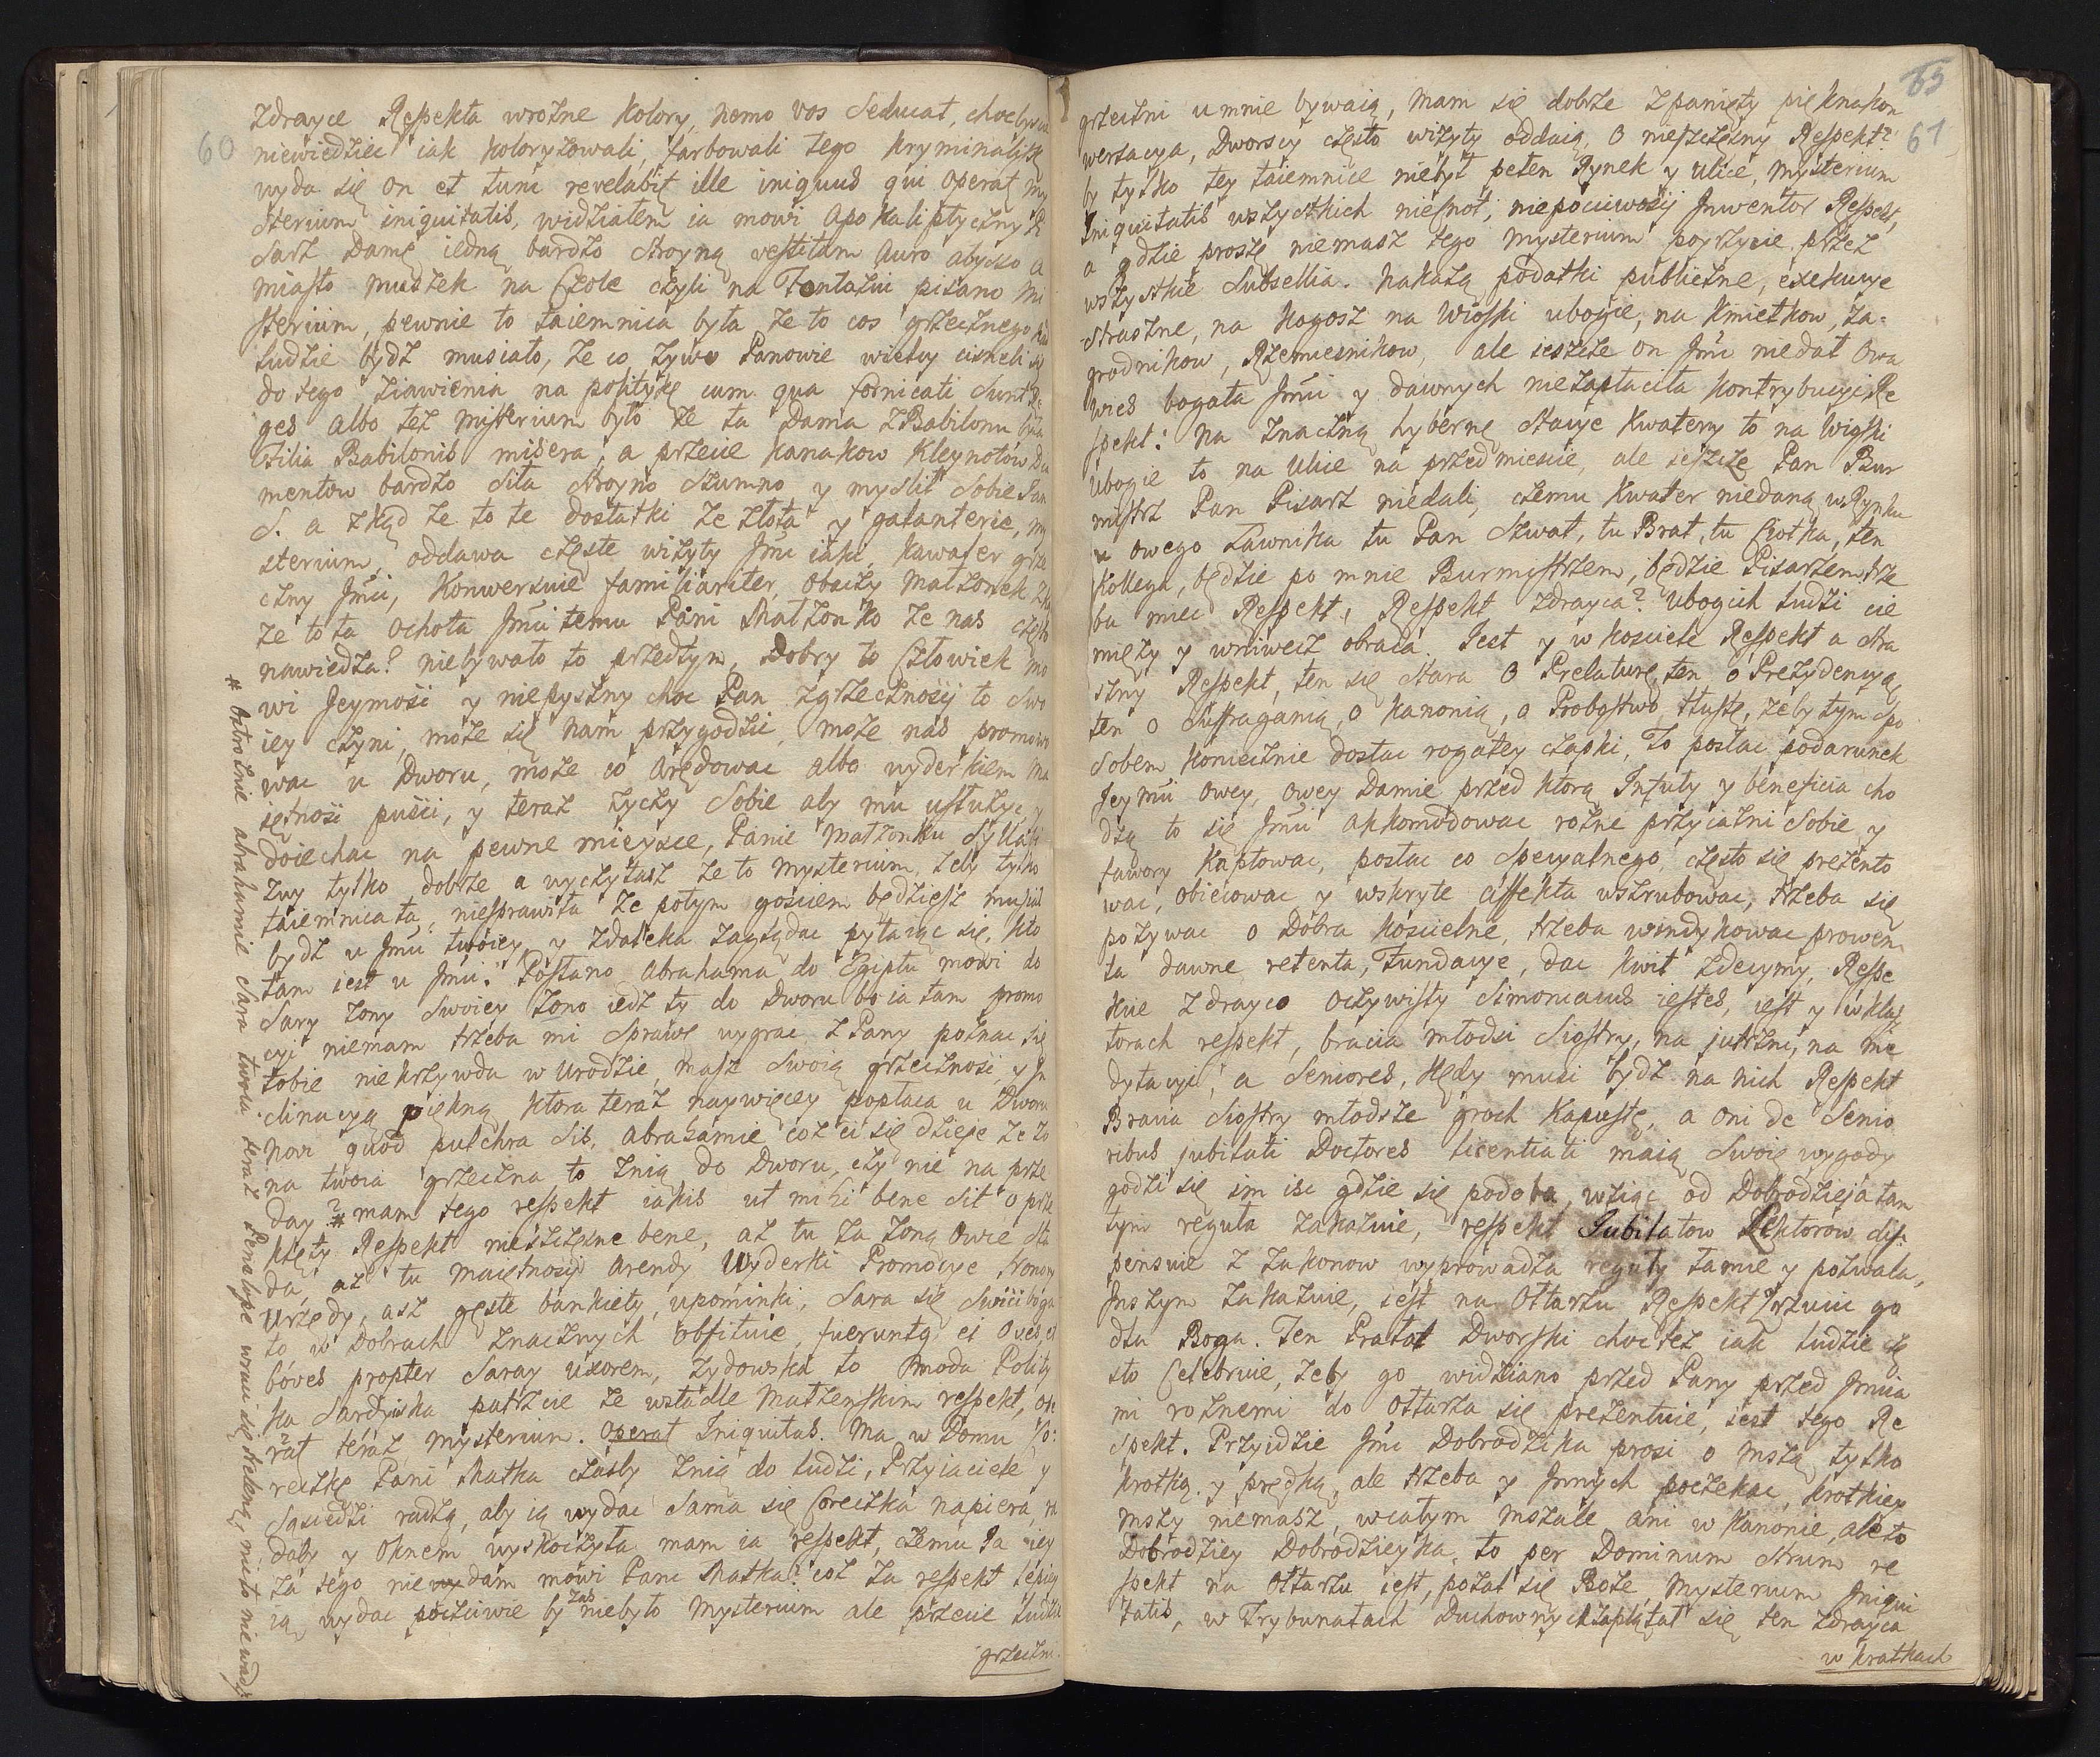 60
zdrayce Respekta wrożne kolory, nemo vos seducat, choćbyscie
niewiedzieć iak koloryzowali, farbowali tego kryminalistę
wyda się on et tunc revelabit ille iniquus qui operat my
sterium iniquitatis, widziałem ia mowi Apokaliptyczny Pi
sarz Damę iedną bardzo stroyną vestitam auro abysso a
miasto muszek na Czole czyli na Fontaziu pisano Mi
sterium, pewnie to taiemnica była że to cos grzecznego
ludzie bydz musiało, że co żywo Panowie wielcy cisneli się
do tego ziawienia na politykę cum qua fornicati sunt Re
ges albo też misterium było że ta Dama z Babilonu była
Filia Babilonis misera, a przecie kanakow Kleynotów Dia
mentow bardzo siła stroyno szumno y myslił sobie Jan
S. a zkąd że to te dostatki ze złota y galanterie, my
sterium, oddawa częste wizyty Jmci iaki kawaler grze
czny Jmci, konwersuie familiariter, obaczy Małżonek
że to ta ochota Jmci temu Pani Małżonko że nas często
nawiedza? niebywało to przedtym, Dobry to Człowiek mo
wi Jeymość y niepyszny choc Pan z grzecznosij to swo
iey czyni, może się nam przygodzić, może nas promowo
wac u Dworu, może co arędowac albo wyderkiem Ma
iętnosi puści, y teraz życzy sobie aby mu usłużyć y
doiechac na pewne mieysce, Panie Małżonku syllabi
zuy tylko dobrze a wyczytasz że to mysterium, żeby tylko
taiemnica ta niesprawiła że potym gosciem będziesz musiał
bydz u Jmci twoiey, y zdaleka zaglądac pytaiąc się, kto
tam iest u Jmci? Posłano Abrahama do Egiptu mowi do
Sary Żony swoiey Żono iedz ty do Dworu bo ia tam promo
cyi niemam trzeba mi sprawe wygrac z Pany poznac się
tobie niekrzywda w urodzie, masz swoią grzecznosc y In
clinacyą piękną ktora teraz naywięcey popłaca u Dworu
novi quod pulchra sis. Abrahamie coż ci się dzieje że Żo
na twoia grzeczna to znią do Dworu, czy nie na prze
day? # mam tego respekt iakis ut mihi bene sit o prze
klęty Respekt nieszczęsne bene, aż tu za żoną owie sta
da, aż tu Maiętnosci Arendy Wyderki Promocye, honory
Urzędy, asz gęste bankiety, upominki, Sara się swieci boga
to w Dobrach znacznych obfituie, fueruntq ei oves et
boves propter Saray uxorem, żydowska to moda Polity
ka Sardyńska patrzcie że wstadle Małżenskim respekt, ope
rat teraz mysterium. Operat Iniquitas. Ma w Domu Co:
reczkę Pani Matka czasby znią do ludzi, Przyiaciele y
Sąsiedzi radzą, aby ią wydac sama się Coreczka napiera, ra
daby y oknem wyskoczyła mam ia respekt, czemu ia iey
za tego niewydam mowi Pani Matka? coż za respekt lepiey
ią wydac poczciwie by zas niebyło mysterium ale przecie ludzie
grzeczni
# ostrożnie Abrahamie Sara twoia temi Penelope wraci się Helena, nic to nie wadzi
65
61
grzeczni umnie bywaią, mam się dobrze z panięty piękna kon
wersacya, Dworscy często wizyty oddaią, O nieszczęsny Respekt?
by tylko tey taiemnice niebył pełen Rynek y Ulice, mysterium
Iniquitatis wszystkich niecnot, niepoczciwosij Inwentor Respekt,
a gdzie proszę niemasz tego mysterium poyrzycie przez
wszystkie Subsellia. Nakażą podatki publiczne, exekucye
straszne, na kogosz na Wioski ubogie, na Kmietkow, za-
grodnikow, Rzemiesnikow, ale ieszcze on Jmci niedał Owa
wies bogata Jmci y dawnych niezapłaciła kontrybucyi Re
spekt: Na znaczną hybernę stacye kwatery to na Wioski
ubogie to na ulice na przedmiescie, ale ieszcze Pan Bur
mistrz Pan Pisarz niedali, czemu kwater niedaną w Rynku
u owego Ławnika tu Pan Szwat, tu Brat, tu Ciotka, ten
Kollega, będzie po mnie Burmistrzem, będzie Pisarzem trze
ba miec Respekt, Respekt zdrayca? ubogich ludzi cie
mięzy y wniwecz obraca. Iest y w kosciele Respekt a stra
szny Respekt, ten się stara o Prelaturę, ten o Prezydencyą
ten o Suffraganią, o kanonią, o Probostwo tłuste, żeby tym spo
sobem koniecznie dostac rogatey czapki, To posłac podarunek
Jeymci owey, owey Damie przed ktorą Infuły y beneficia cho
dzą to się Jmci akkomodowac rożne przyiażni sobie y
fawory kaptowac, posłac co specyalnego często się prezento
wac, obiecowac y wskryte affekta wszrubowac, trzeba się
pozywac o Dobra koscielne, trzeba windykowac prowen
ta dawne retenta, Fundacye, dac kwit z decymy, Respe
kcie zdrayco oczywisty Simoniacus iestes, iest y wklasz
torach respekt, bracia młodsi Siostry, na jutrzni, na me
dytacyi, a Seniores, kędy musi bydz na nich Respekt
Bracia Siostry młodsze groch kapustę, a oni de Senio
ribus jubilati Doctores licentiati maią swoie wygody
godzi się im isc gdzie się podoba, wziąc od Dobrodzieja tam
tym reguła zakazuie, respekt Jubilatow Lektorow dis-
pensuie z zakonow wyprowadza reguły łamie y pozwala,
Inszym zakazuie, iest na Ottarzu Respekt? rzucic go
dla Boga. Ten Prałat Dworski choc też iak ludzie cżę
sto Celebruie, żeby go widziano przed Pany przed Jmcia
mi rożnemi do ottarza się prezentuie, iest tego Re
spekt. Przyidzie Jmc Dobrodzika prosi o Mszą tylko
krotką y prędką, ale trzeba y Innych poczekac, krotkiey
Mszy niemasz, wcałym Mszale ani w kanonie, ale to
Dobrodziey Dobrodzieyka, to per Dominum strum re
spekt na ottarzu iest, pożal się Boże Mysterium Iniqui
tatis, w Trybunałach Duchownych zaplątał się ten zdrayca
w kratkach